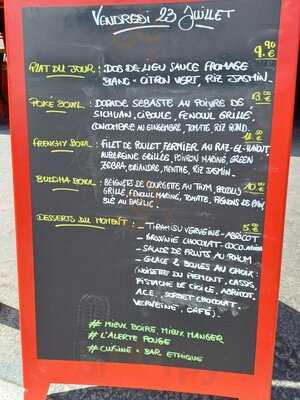 VENDREDI 23 JUILLET
9.90 €
PLAT DU JOUR : DOS DE LIEU SAUCE FROMAGE
BLANC - CITRON VERT, RIZ JASMIN
13.00 €
POKÉ BOWL : DORADE SEBASTE AU POIVRE DE
SICHUAN, CIBOULE, FENOUIL GRILLÉ,
CONCOMBRE AU GINGEMBRE, TOMATE, RIZ ROND.
FRENCHY BOWL : FILET DE POULET FERMIER AU RAZ-EL-HANOUT,
AUBERGINE GRILLÉE, POIVRON MARINÉ, GREEN
ZEBRA, CORIANDRE, MENTHE, RIZ JASMIN.
BUDDHA BOWL : BEIGNETS DE COURGETTE AU THYM, BROCOLIS
GRILLÉ, FENOUIL MARINÉ, TOMATE, PIGNONS DE PIN,
BLÉ AU BASILIC.
DESSERTS DU MOMENT : 5 €
- TIRAMISU VERVEINE - ABRICOT
- BROWNIE CHOCOLAT - COCO
- SALADE DE FRUITS AU RHUM
- GLACE 2 BOULES AU CHOIX :
(NOISETTE DU PIEMONT, CASSIS,
PISTACHE DE SICILE, ABRICOT,
SORBET CHOCOLAT,
VERVEINE, CAFÉ)
# MIEUX BOIRE, MIEUX MANGER
# L'ALERTE ROUGE
# CUISINE + BAR ETHIQUE